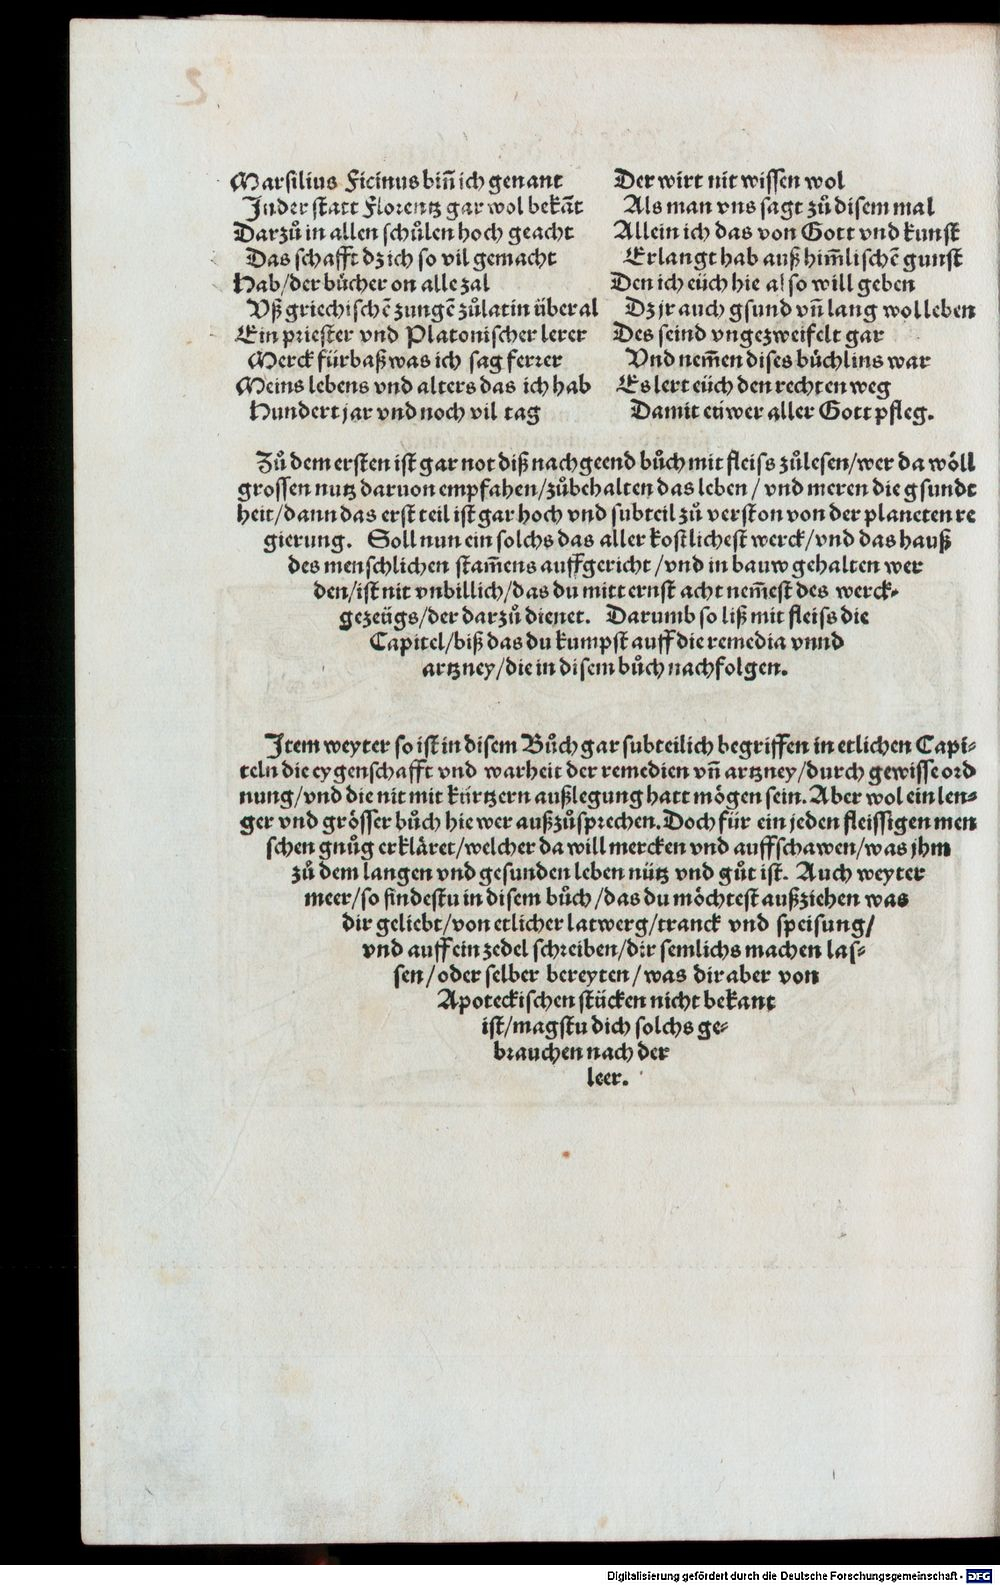 Marsilius Ficinus biñ ich genant
In der statt Florentz gar wol bekāt
Darzů in allen schůlen hoch geacht
Das schafft dz ich so vil gemacht
Hab/der bücher on alle zal
Vß griechischē zungē zůlatin über al
Ein priester vnd Platonischer lerer
Merck fürbaß was ich sag ferrer
Meins lebens vnd alters das ich hab
Hundert jar vnd noch vil tag
Der wirt nit wissen wol
Als man vns sagt zů disem mal
Allein ich das von Gott vnd kunst
Erlangt hab auß him̄lischē gunst
Den ich eüch hie also will geben
Dz jr auch gsund vn̄ lang wol leben
Des seind vngezweifelt gar
Vnd nem̄en dises bůchlins war
Es lert eüch den rechten weg
Damit eüwer aller Gott pfleg.
Zů dem ersten ist gar not diß nachgeend bůch mit fleiss zůlesen/wer da wöll
grossen nutz daruon empfahen/zůbehalten das leben/ vnd meren die gsundt
heit/dann das erst teil ist gar hoch vnd subteil zů verston von der planeten re
gierung. Soll nun ein solchs das aller kostlichest werck/vnd das hauß
des menschlichen stam̄ens auffgericht/vnd in bauw gehalten wer
den/ist nit vnbillich/das du mitt ernst acht nem̄est des werck-
gezeügs/der darzů dienet. Darumb so liß mit fleiss die
Capitel/biß das du kumpst auff die remedia vnnd
artzney/die in disem bůch nachfolgen.
Item weyter so ist in disem Bůch gar subteilich begriffen in etlichen Capi-
teln die eygenschafft vnd warheit der remedien vn̄ artzney/durch gewisse ord
nung/vnd die nit mit kürtzern außlegung hatt mögen sein. Aber wol ein len-
ger vnd grösser bůch hie wer außzůsprechen. Doch für ein jeden fleissigen men
schen gnůg erkläret/welcher da will mercken vnd auffschawen/was jhm
zů dem langen vnd gesunden leben nütz vnd gůt ist. Auch weyter
meer/so findestu in disem bůch/das du möchtest außziehen was
dir geliebt/von etlicher latwerg/tranck vnd speisung/
vnd auff ein zedel schreiben/dir semlichs machen las-
sen/oder selber bereyten/was dir aber von
Apoteckischen stücken nicht bekant
ist/magstu dich solchs ge-
brauchen nach der
leer.
Digitalisierung gefördert durch die Deutsche Forschungsgemeinschaft - DFG